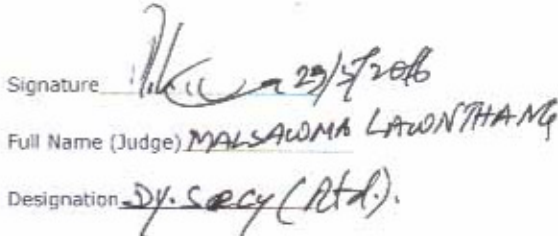 Signature 23/5/2016
Full Name (Judge) MALSAWMA LAWNTHANG
Designation Dy. Secy (Rtd).